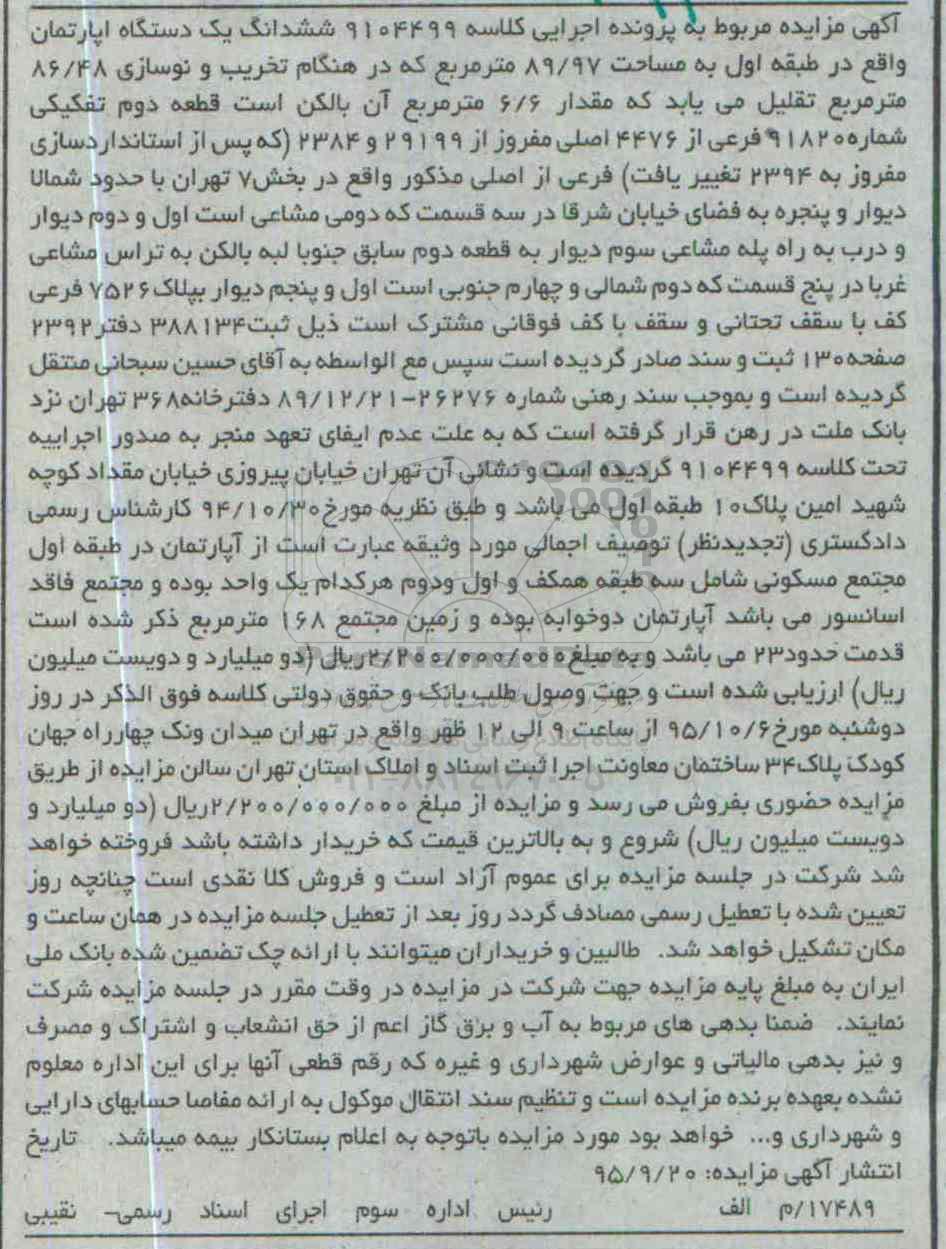 آگهی مزایده مربوط به پرونده اجرایی کلاسه ۹۱۰۴۴۹۹ ششدانگ یک دستگاه اپارتمان
واقع در طبقه اول به مساحت ۸۹/۹۷ مترمربع که در هنگام تخریب و نوسازی ۸۶/۴۸
مترمربع تقلیل می یابد که مقدار ۶/۶ مترمربع آن بالکن است قطعه دوم تفکیکی
شماره۹۱۸۲۰ فرعی از ۴۴۷۶ اصلی مفروز از ۲۹۱۹۹ و ۲۳۸۴ (که پس از استانداردسازی
مفروز به ۲۳۹۴ تغییر یافت) فرعی از اصلی مذکور واقع در بخش۷ تهران با حدود شمالا
دیوار و پنجره به فضای خیابان شرقا در سه قسمت که دومی مشاعی است اول و دوم دیوار
و درب به راه پله مشاعی سوم دیوار به قطعه دوم سابق جنوبا لبه بالکن به تراس مشاعی
غربا در پنج قسمت که دوم شمالی و چهارم جنوبی است اول و پنجم دیوار بپلاک۷۵۲۶ فرعی
کف با سقف تحتانی و سقف با کف فوقانی مشترک است ذیل ثبت۳۸۸۱۳۴ دفتر۲۳۹۲
صفحه۱۳۰ ثبت و سند صادر گردیده است سپس مع الواسطه به آقای حسین سبحانی منتقل
گردیده است و بموجب سند رهنی شماره ۲۶۲۷۶-۸۹/۱۲/۲۱ دفترخانه۳۶۸ تهران نزد
بانک ملت در رهن قرار گرفته است که به علت عدم ایفای تعهد منجر به صدور اجراییه
تحت کلاسه ۹۱۰۴۴۹۹ گردیده است و نشانی آن تهران خیابان پیروزی خیابان مقداد کوچه
شهید امین پلاک۱۰ طبقه اول می باشد و طبق نظریه مورخ۹۴/۱۰/۳۰ کارشناس رسمی
دادگستری (تجدیدنظر) توصیف اجمالی مورد وثیقه عبارت است از آپارتمان در طبقه اول
مجتمع مسکونی شامل سه طبقه همکف و اول ودوم هرکدام یک واحد بوده و مجتمع فاقد
اسانسور می باشد آپارتمان دوخوابه بوده و زمین مجتمع ۱۶۸ مترمربع ذکر شده است
قدمت حدود۲۳ می باشد و به مبلغ۲/۲۰۰/۰۰۰/۰۰۰ریال (دو میلیارد و دویست میلیون
ریال) ارزیابی شده است و جهت وصول طلب بانک و حقوق دولتی کلاسه فوق الذکر در روز
دوشنبه مورخ۹۵/۱۰/۶ از ساعت ۹ الی ۱۲ ظهر واقع در تهران میدان ونک چهارراه جهان
کودک پلاک۳۴ ساختمان معاونت اجرا ثبت اسناد و املاک استان تهران سالن مزایده از طریق
مزایده حضوری بفروش می رسد و مزایده از مبلغ ۲/۲۰۰/۰۰۰/۰۰۰ریال (دو میلیارد و
دویست میلیون ریال) شروع و به بالاترین قیمت که خریدار داشته باشد فروخته خواهد
شد شرکت در جلسه مزایده برای عموم آزاد است و فروش کلا نقدی است چنانچه روز
تعیین شده با تعطیل رسمی مصادف گردد روز بعد از تعطیل جلسه مزایده در همان ساعت و
مکان تشکیل خواهد شد. طالبین و خریداران میتوانند با ارائه چک تضمین شده بانک ملی
ایران به مبلغ پایه مزایده جهت شرکت در مزایده در وقت مقرر در جلسه مزایده شرکت
نمایند. ضمنا بدهی های مربوط به آب و برق گاز اعم از حق انشعاب و اشتراک و مصرف
و نیز بدهی مالیاتی و عوارض شهرداری و غیره که رقم قطعی آنها برای این اداره معلوم
نشده بعهده برنده مزایده است و تنظیم سند انتقال موکول به ارائه مفاصا حسابهای دارایی
و شهرداری و... خواهد بود مورد مزایده باتوجه به اعلام بستانکار بیمه میباشد. تاریخ
انتشار آگهی مزایده: ۹۵/۹/۲۰
۱۷۴۸۹/م الف رئیس اداره سوم اجرای اسناد رسمی- نقیبی